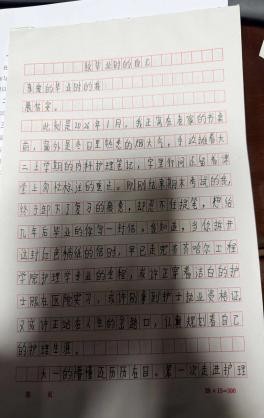 致毕业时的自己
亲爱的毕业时的我
展信安。
此刻是2026年1月，我正窝在老家的书桌
前，窗外是冬日里特有的烟火气，手边摊着大
二上学期的内科护理笔记，字里行间还留着课
学上勾红标注的重点。刚刚结束期末考试的我，
终于卸下了复习的疲惫，却忍不住提笔，想给
几年后毕业的你写一封信。我知道，当你拆开
这封红色稿纸的信时，早已走完齐齐哈尔工程
学院护理学专业的全程，或许正穿着洁白的护
士服在医院实习，或许刚拿到护士执业资格证，
又或许正站在人生的岔路口，认真规划着自己
的护理生涯。
大一的懵懂还历历在目。第一次走进护理
第 页
20×15=300